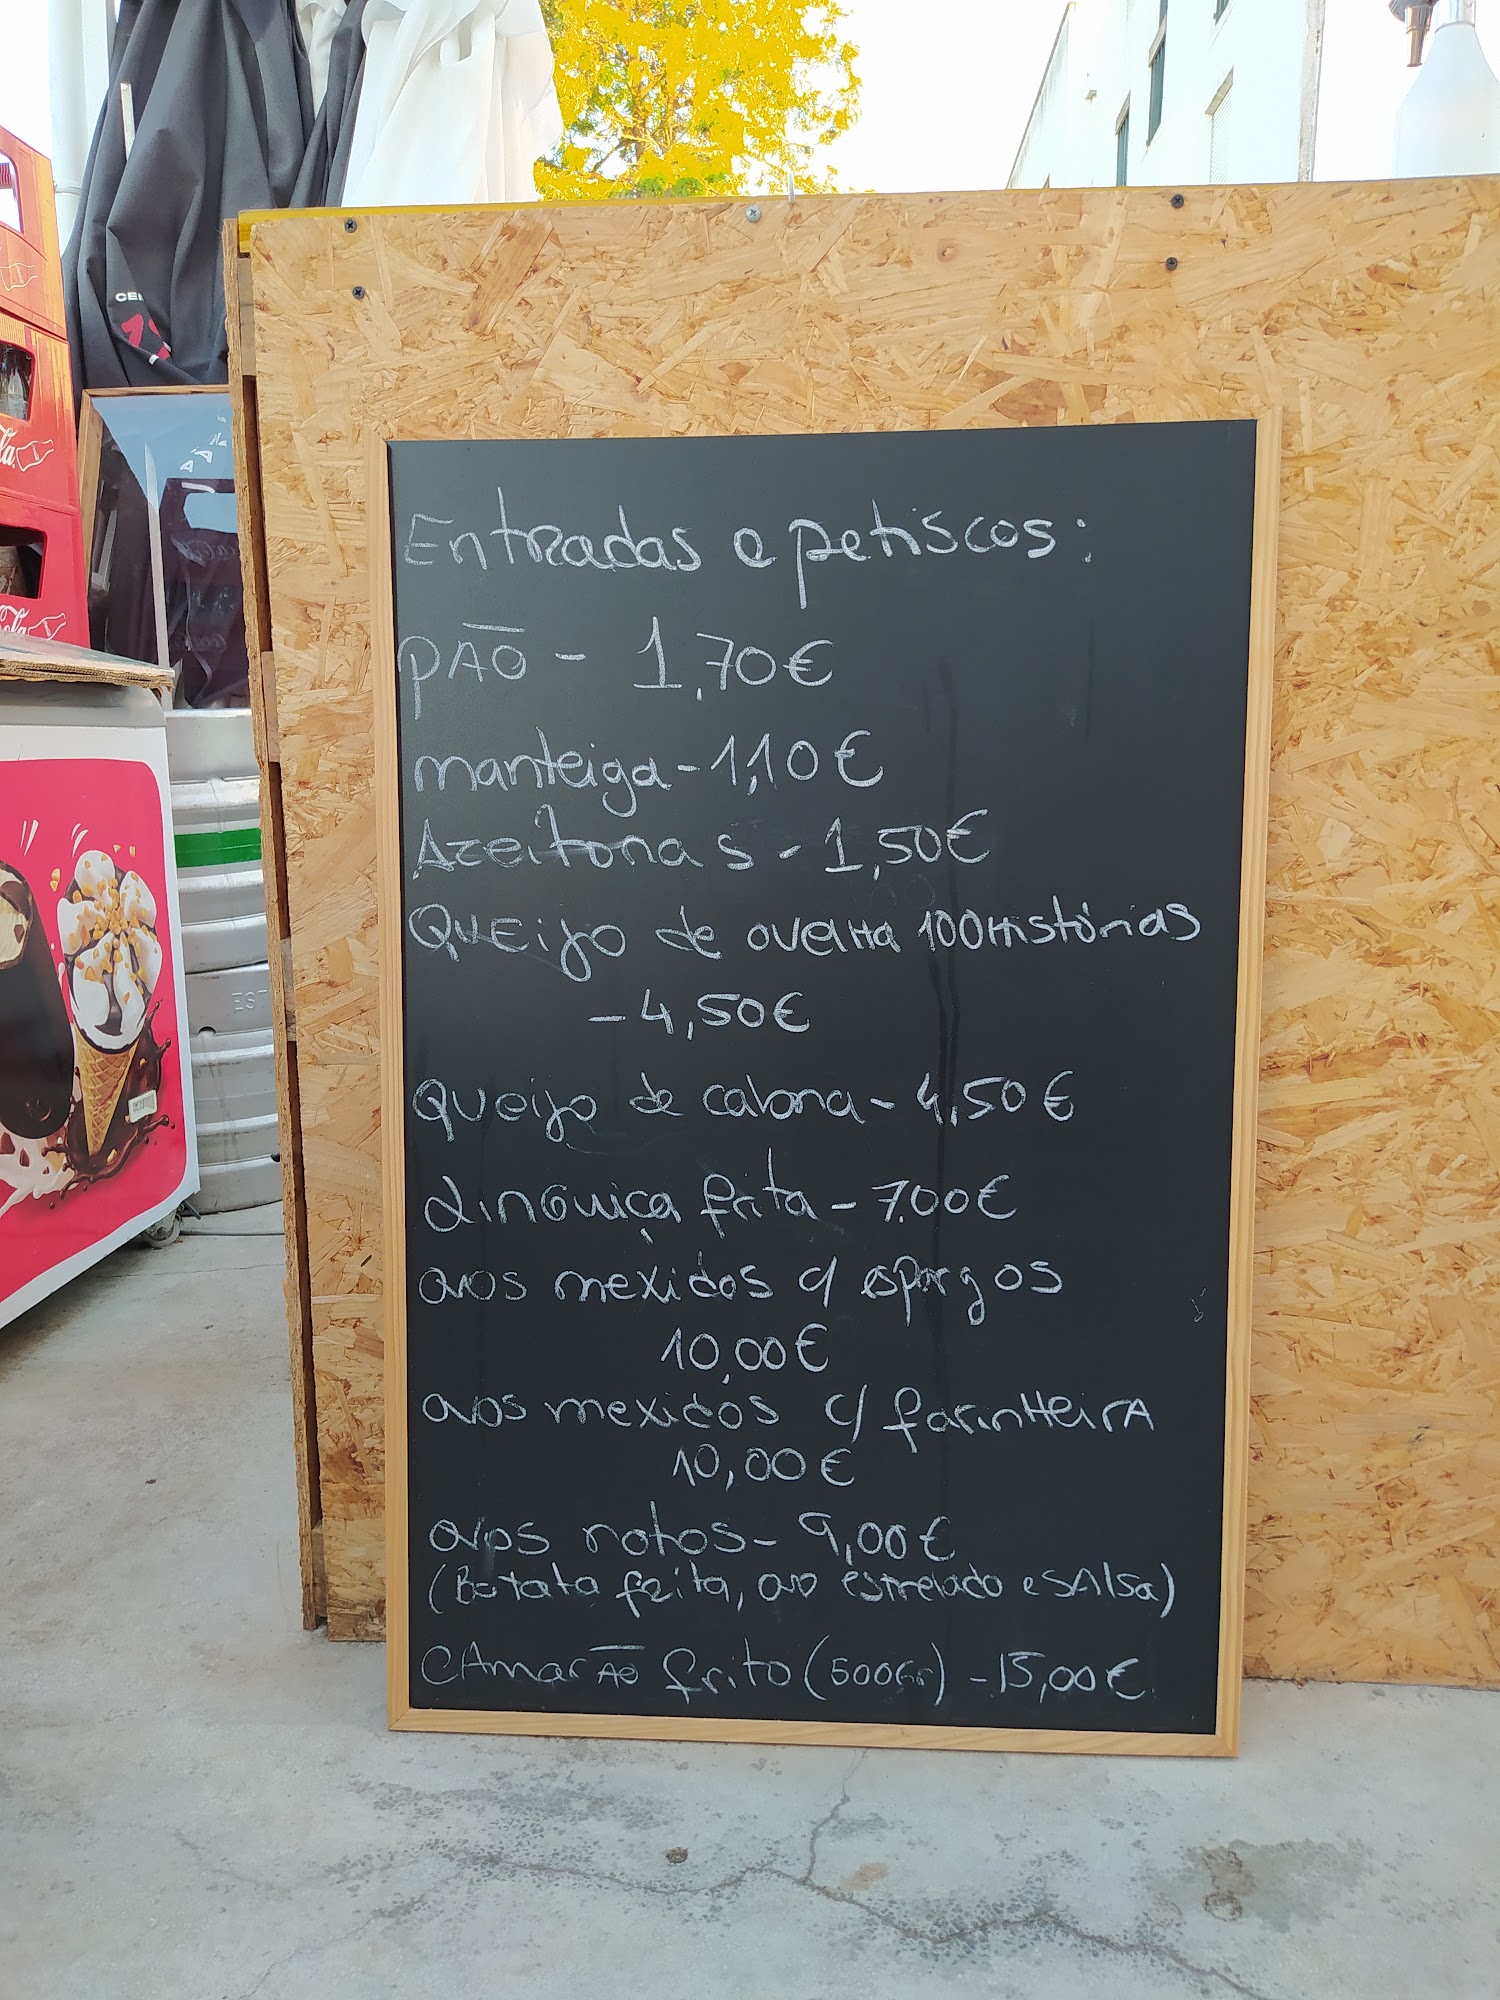 Entradas e petiscos:
PÃO - 1,70€
manteiga - 1,10€
Azeitonas - 1,50€
Queijo de ovelha 100 histórias
- 4,50€
Queijo de cabra - 4,50€
Linguiça frita - 7,00€
ovos mexidos c/ espargos
10,00€
ovos mexidos c/ farinheira
10,00€
ovos rotos - 9,00€
(Batata frita, ovo estrelado e salsa)
CAmarÃo frito (500Gr) - 15,00€
CE
la
Cola
EST